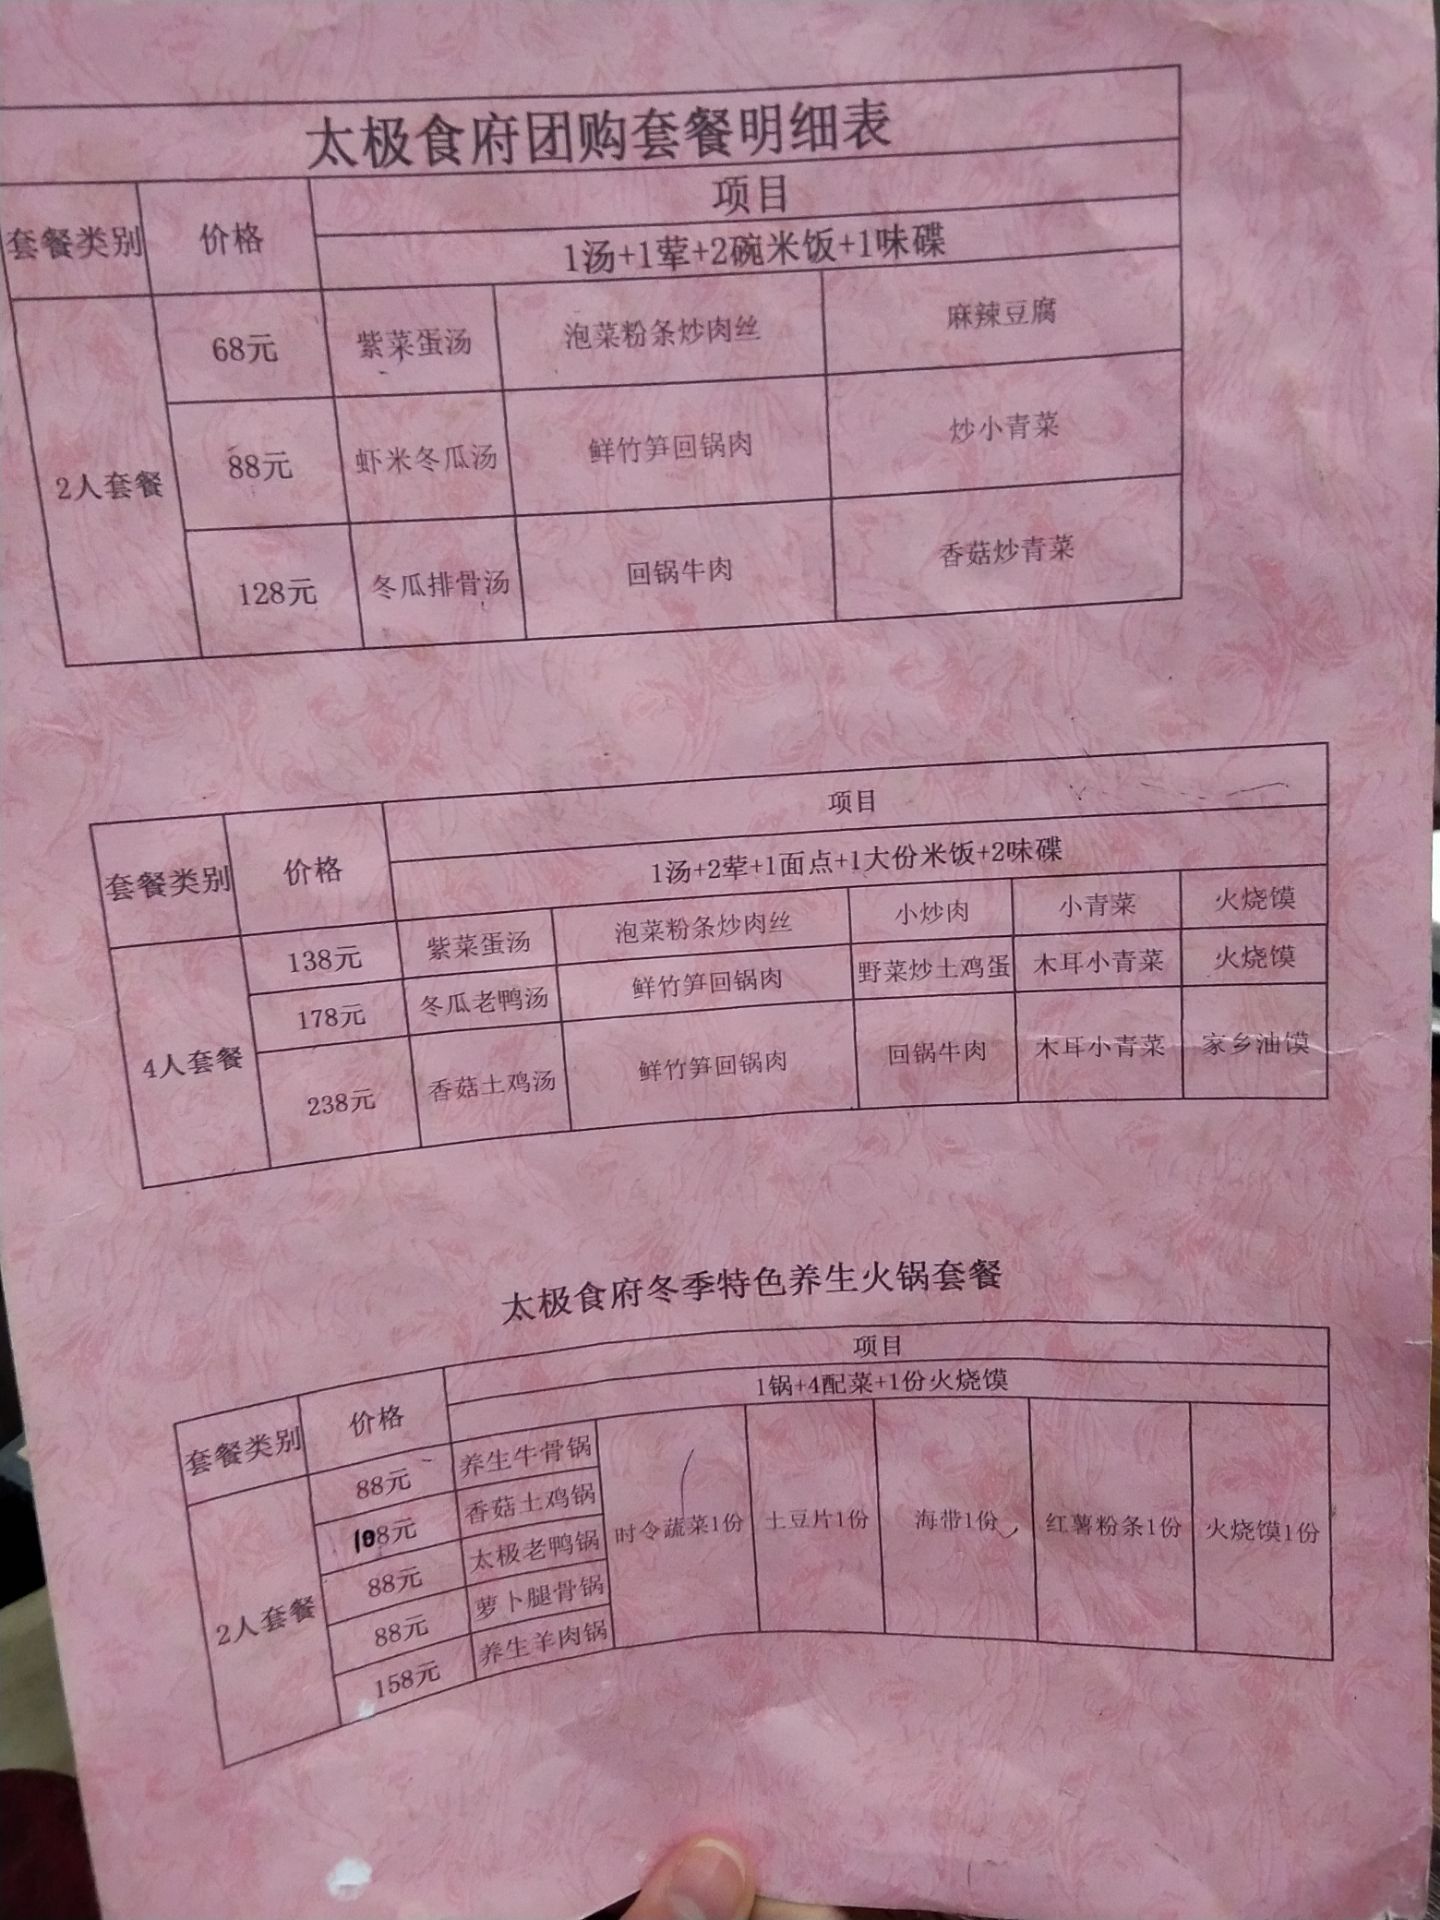 太极食府团购套餐明细表
套餐类别 价格 项目
1汤+1荤+2碗米饭+1味碟
2人套餐
68元 紫菜蛋汤 泡菜粉条炒肉丝 麻辣豆腐
88元 虾米冬瓜汤 鲜竹笋回锅肉 炒小青菜
128元 冬瓜排骨汤 回锅牛肉 香菇炒青菜
套餐类别 价格 项目
1汤+2荤+1面点+1大份米饭+2味碟
4人套餐
138元 紫菜蛋汤 泡菜粉条炒肉丝 小炒肉 小青菜 火烧馍
178元 冬瓜老鸭汤 鲜竹笋回锅肉 野菜炒土鸡蛋 木耳小青菜 火烧馍
238元 香菇土鸡汤 鲜竹笋回锅肉 回锅牛肉 木耳小青菜 家乡油馍
太极食府冬季特色养生火锅套餐
套餐类别 价格 项目
1锅+4配菜+1份火烧馍
2人套餐
88元 养生牛骨锅
108元 香菇土鸡锅
88元 太极老鸭锅
88元 萝卜腿骨锅
158元 养生羊肉锅
时令蔬菜1份 土豆片1份 海带1份 红薯粉条1份 火烧馍1份